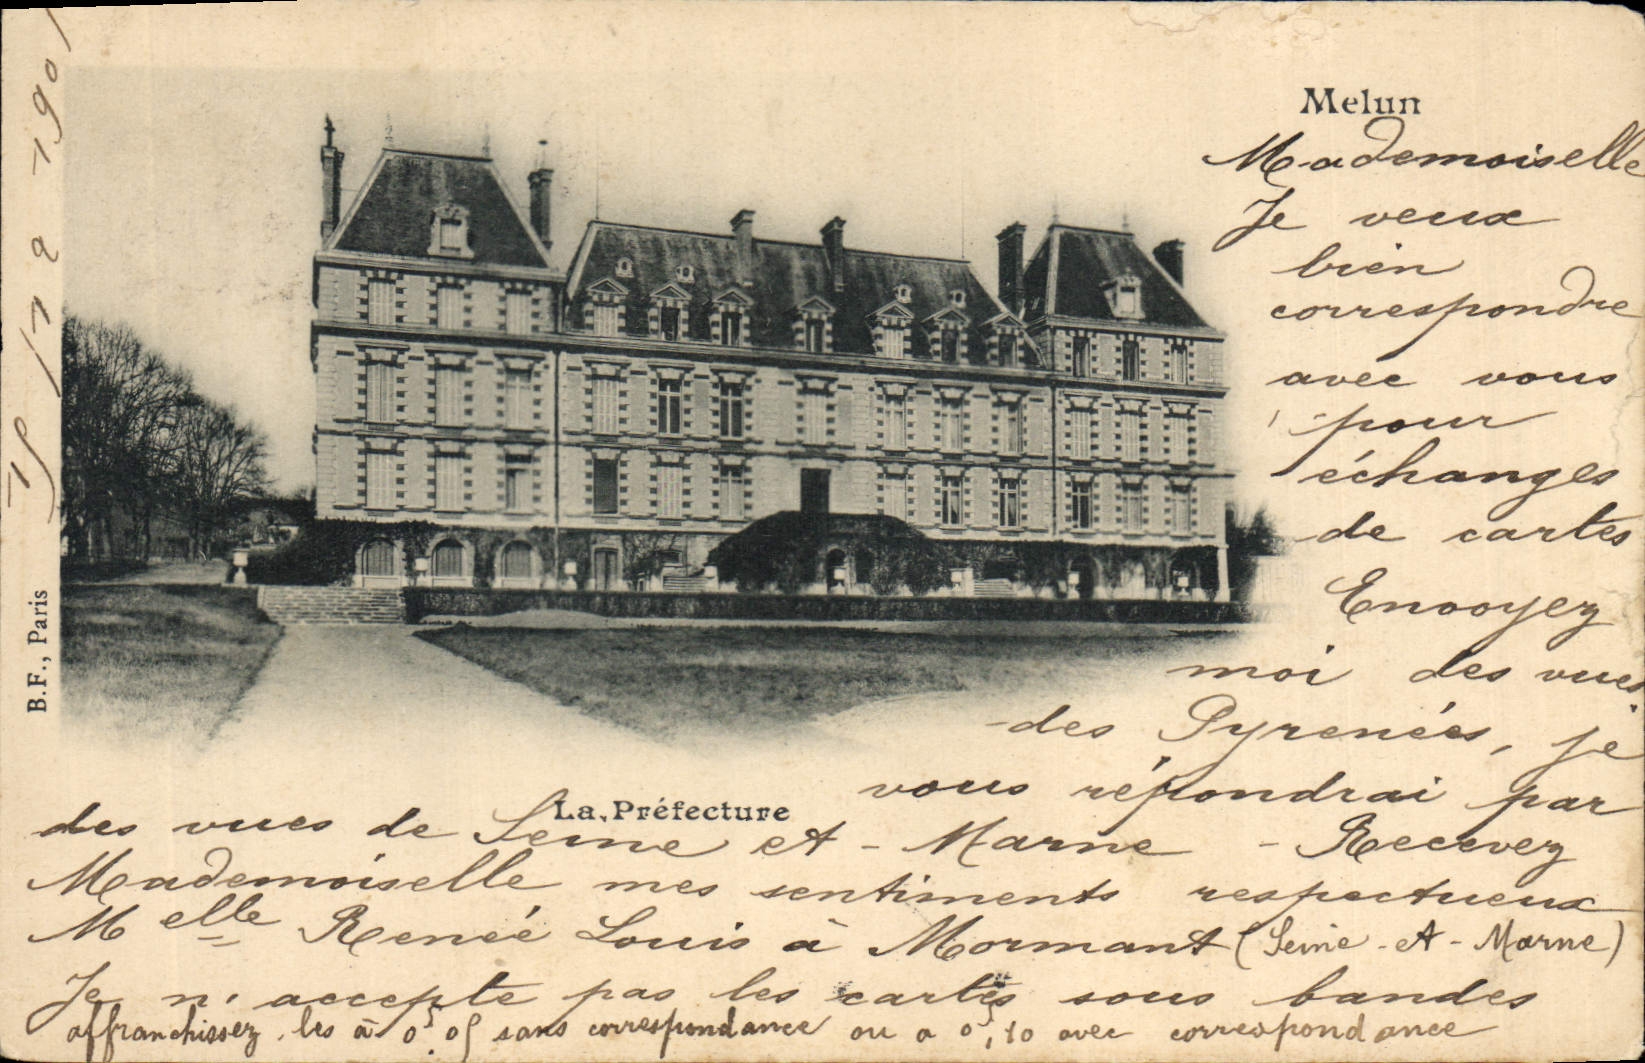 Melun
Mademoiselle
Je veux
bien
correspondre
avec vous
pour
échanges
de cartes
Envoyez
moi des vues
des Pyrenées, je
vous répondrai par
La Préfecture
des vues de Seine et - Marne - Recevez
Mademoiselle mes sentiments respectueux
Melle Renée Louis à Mormant (Seine - et - Marne)
Je n'accepte pas les cartes sous bandes
affranchissez les à 0f,05 sans correspondance ou a 0f,10 avec correspondance
B.F., Paris
1901